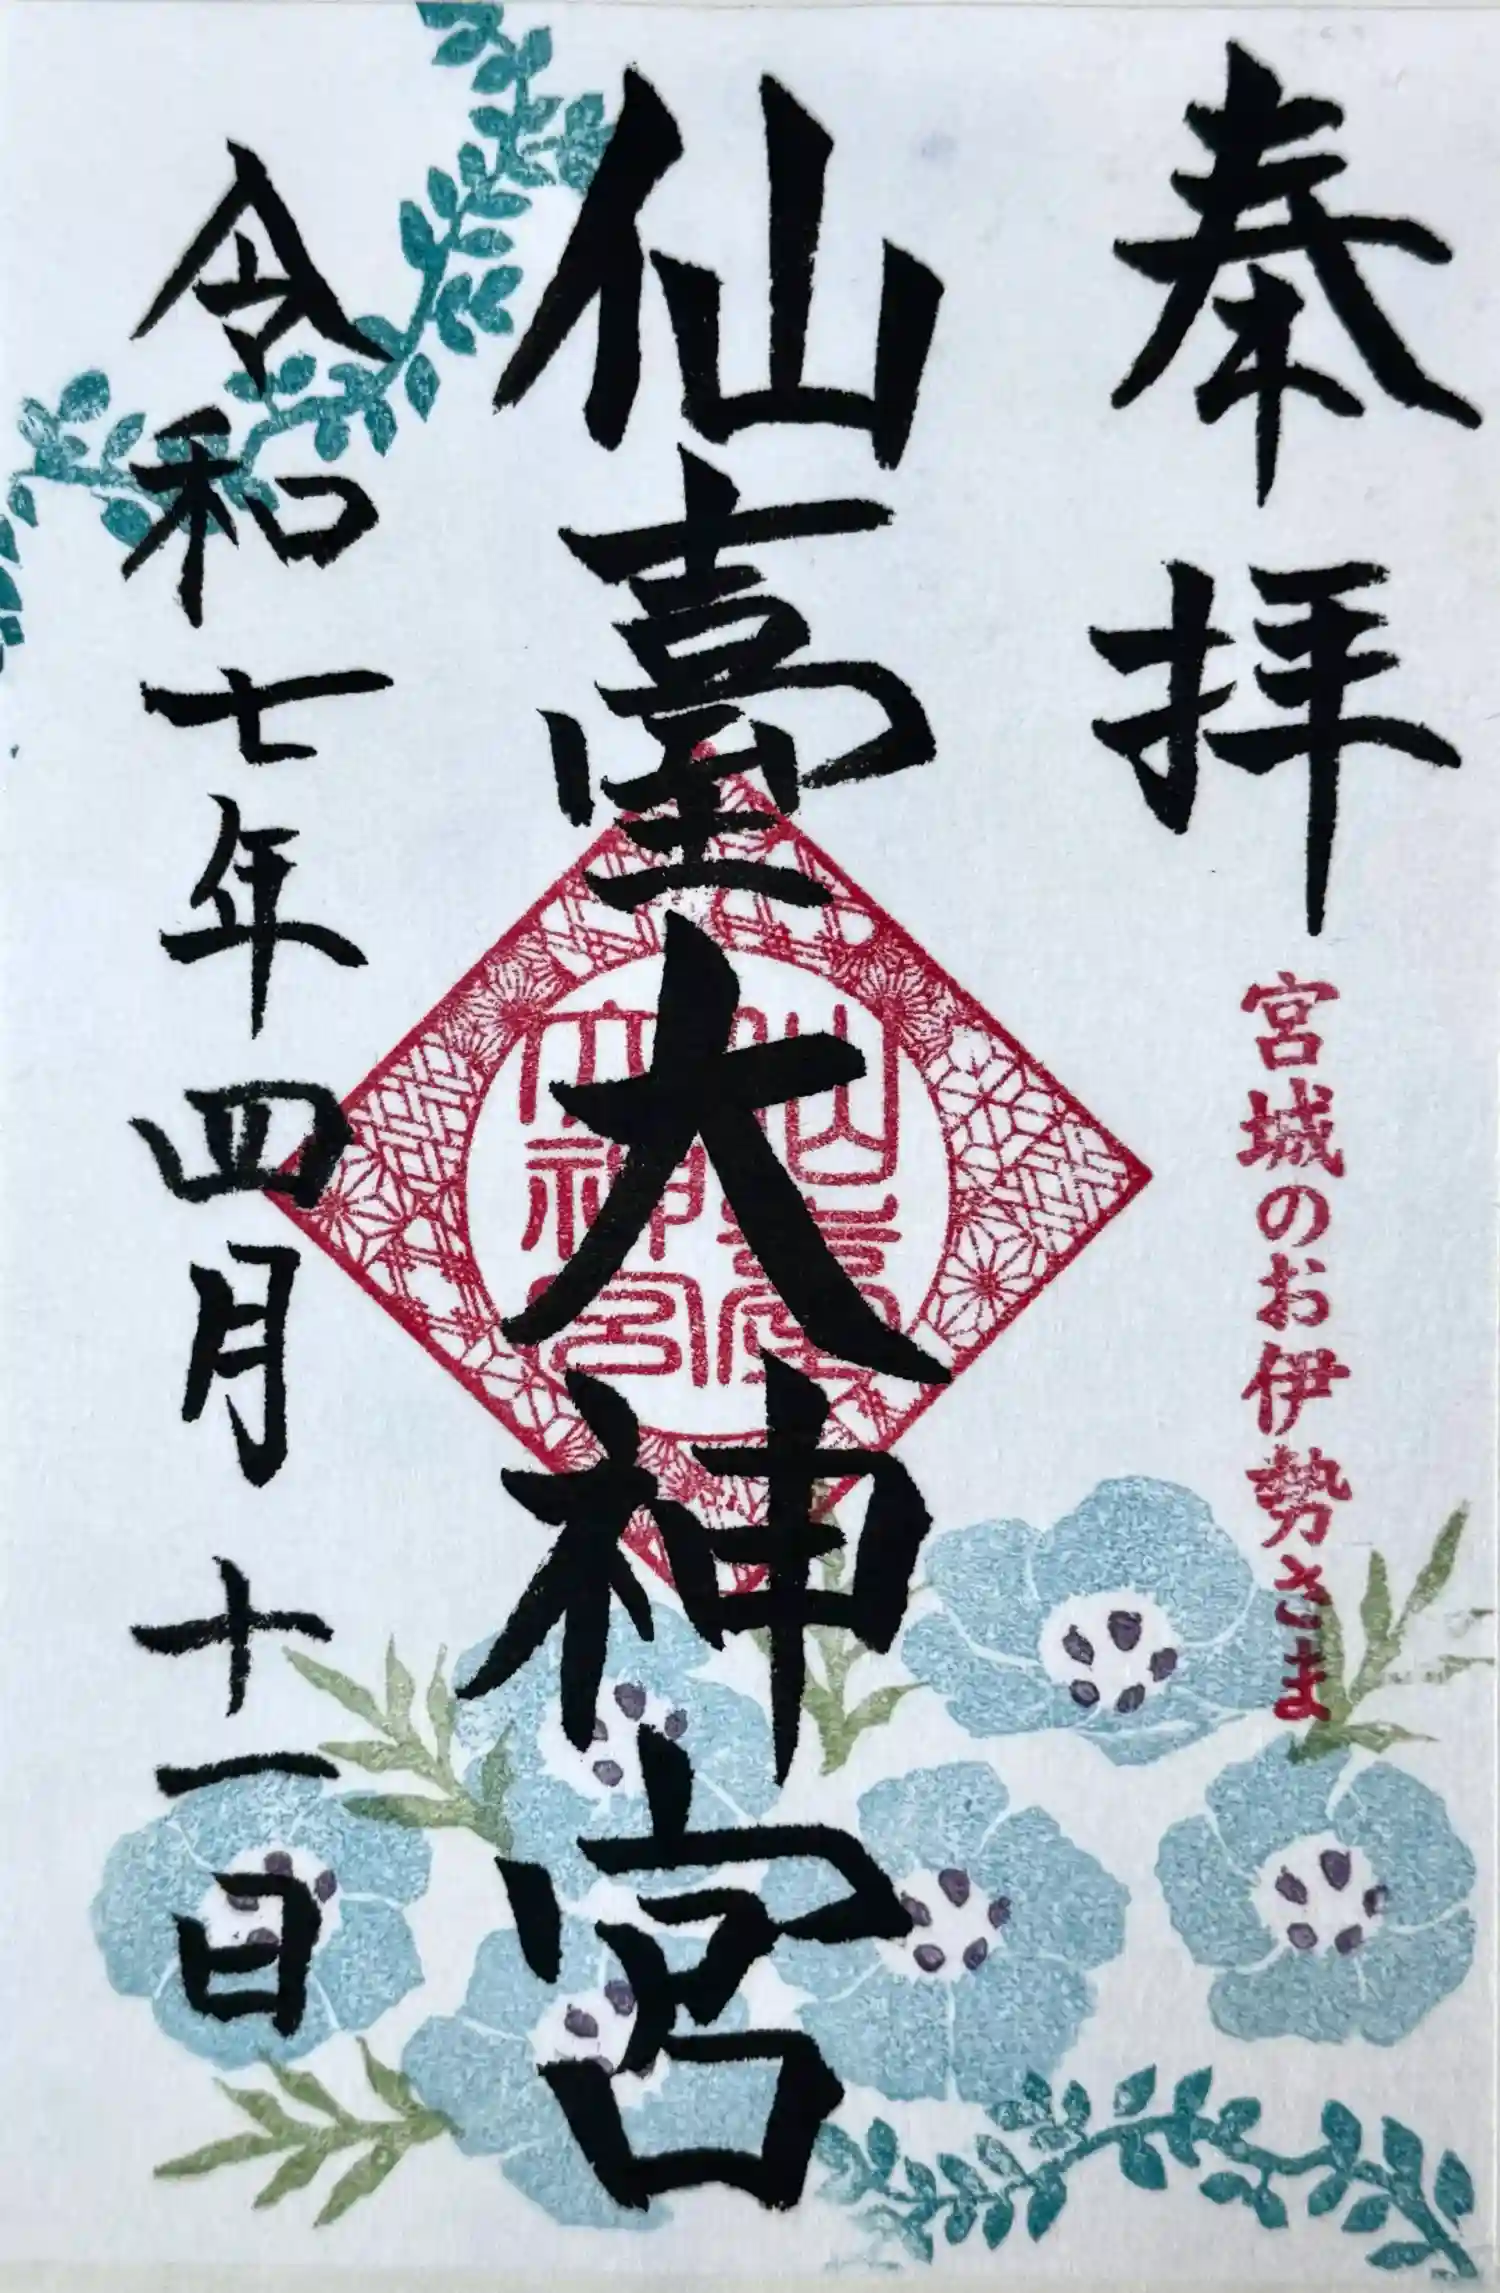 奉拝
宮城のお伊勢さま
仙臺大神宮
仙臺
大神宮
令和七年四月十一日